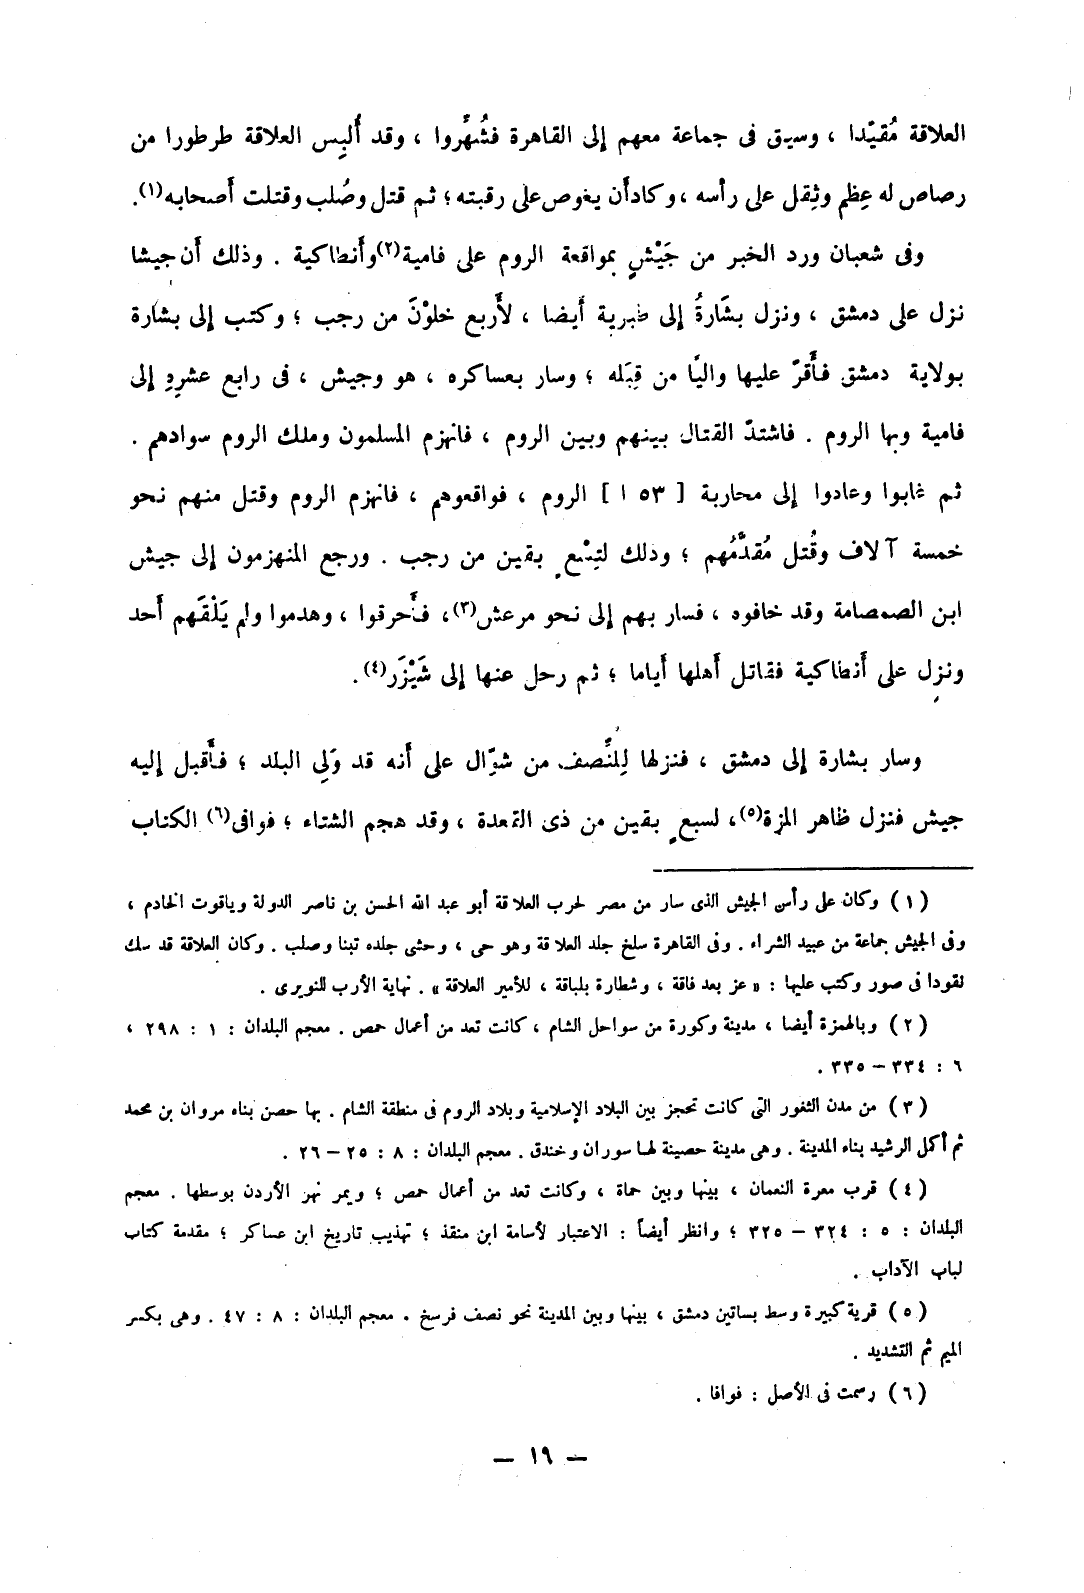 العلاقة مُقيّدا ، وسيق فى جماعة معهم إلى القاهرة فشُهِّروا ، وقد أُلبِس العلاقة طرطورا من
رصاص له عِظم وثِقل على رأسه ، وكاد أن يغوص على رقبته ؛ ثم قتل وصُلب وقتلت أصحابه(١).
وفى شعبان ورد الخبر من جَيْشٍ بمواقعة الروم على فامية(٢) وأنطاكية . وذلك أن جيشا
نزل على دمشق ، ونزل بشَارةُ إلى طبرية أيضا ، لأربع خلوْنَ من رجب ؛ وكتب إلى بشارة
بولاية دمشق فأقرّ عليها واليًا من قِبَله ؛ وسار بعساكره ، هو وجيش ، فى رابع عشره إلى
فامية وبها الروم . فاشتدّ القتال بينهم وبين الروم ، فانهزم المسلمون وملك الروم سوادهم .
ثم غابوا وعادوا إلى محاربة [ ٥٣ ا ] الروم ، فواقعوهم ، فانهزم الروم وقتل منهم نحو
خمسة آلاف وقُتل مُقدَّمُهم ؛ وذلك لتِسْعٍ بقين من رجب . ورجع المنهزمون إلى جيش
ابن الصمصامة وقد خافوه ، فسار بهم إلى نحو مرعش(٣)، فأحرقوا ، وهدموا ولم يَلْقَهم أحد
ونزِل على أنطاكية فقاتل أهلها أياما ؛ ثم رحل عنها إلى شَيْزَر(٤).
وسار بشارة إلى دمشق ، فنزلها لِلنُّصف من شوّال على أنه قد وَلِى البلد ؛ فأقبل إليه
جيش فنزل ظاهر المزة(٥)، لسبعٍ بقين من ذى القعدة ، وقد هجم الشتاء ؛ فوافى(٦) الكتاب
(١) وكان على رأس الجيش الذى سار من مصر لحرب العلاقة أبو عبد الله الحسن بن ناصر الدولة وياقوت الخادم ،
وفى الجيش جماعة من عبيد الشراء . وفى القاهرة سلخ جلد العلاقة وهو حى ، وحشى جلده تبنا وصلب . وكان العلاقة قد سك
نقودا فى صور وكتب عليها : « عز بعد فاقة ، وشطارة بلباقة ، للأمير العلاقة » . نهاية الأرب للنويرى .
(٢) وبالهمزة أيضا ، مدينة وكورة من سواحل الشام ، كانت تعد من أعمال حمص . معجم البلدان : ١ : ٢٩٨ ،
٦ : ٣٣٤ – ٣٣٥ .
(٣) من مدن الثغور التى كانت تحجز بين البلاد الإسلامية وبلاد الروم فى منطقة الشام . بها حصن بناه مروان بن محمد
ثم أكمل الرشيد بناء المدينة . وهى مدينة حصينة لها سوران وخندق . معجم البلدان : ٨ : ٢٥ – ٢٦ .
(٤) قرب معرة النعمان ، بينها وبين حماة ، وكانت تعد من أعمال حمص ؛ ويمر نهر الأردن بوسطها . معجم
البلدان : ٥ : ٣٢٤ – ٣٢٥ ؛ وانظر أيضاً : الاعتبار لأسامة ابن منقذ ؛ تهذيب تاريخ ابن عساكر ؛ مقدمة كتاب
لباب الآداب .
(٥) قرية كبيرة وسط بساتين دمشق ، بينها وبين المدينة نحو نصف فرسخ . معجم البلدان : ٨ : ٤٧ . وهى بكسر
الميم ثم التشديد .
(٦) رسمت فى الأصل : فوافا .
— ١٩ —